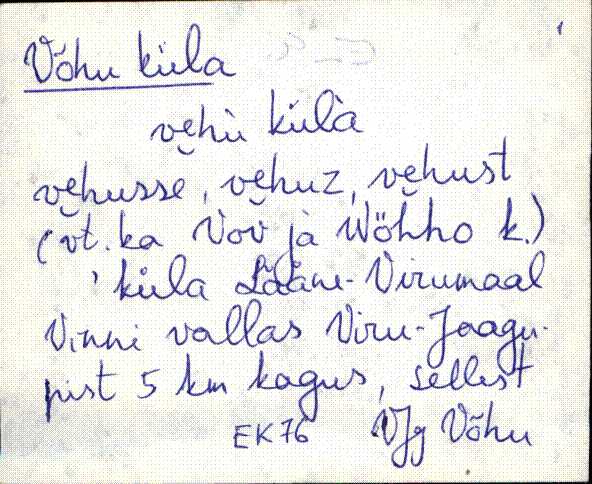 Võhu küla
ve̮hù külà
ve̮husse, ve̮huz, ve̮hust
(vt. ka Vov ja Wöhho k.)
' küla Lääne-Virumaal
Vinni vallas Viru-Jaagu-
pist 5 km kagus, sellest
EK76 VJg Võhu